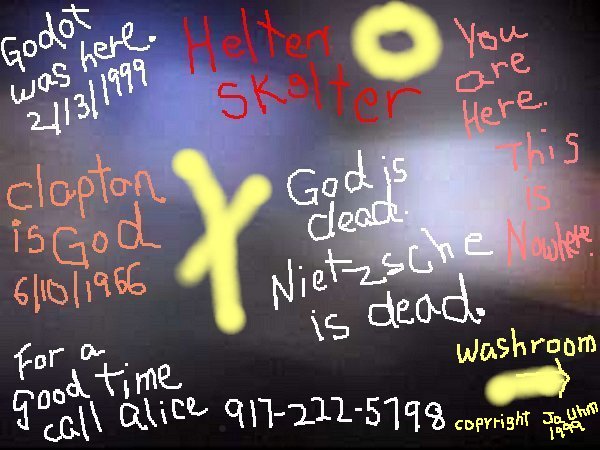 Godot
was here.
2/13/1999
Helter
Skelter
You
are
Here.
This
is
Nowhere.
Clapton
is God
6/10/1966
God is
dead.
Nietzsche
is dead.
For a
good time
call alice 917-222-5798
washroom
copyright Ja Uhm
1999